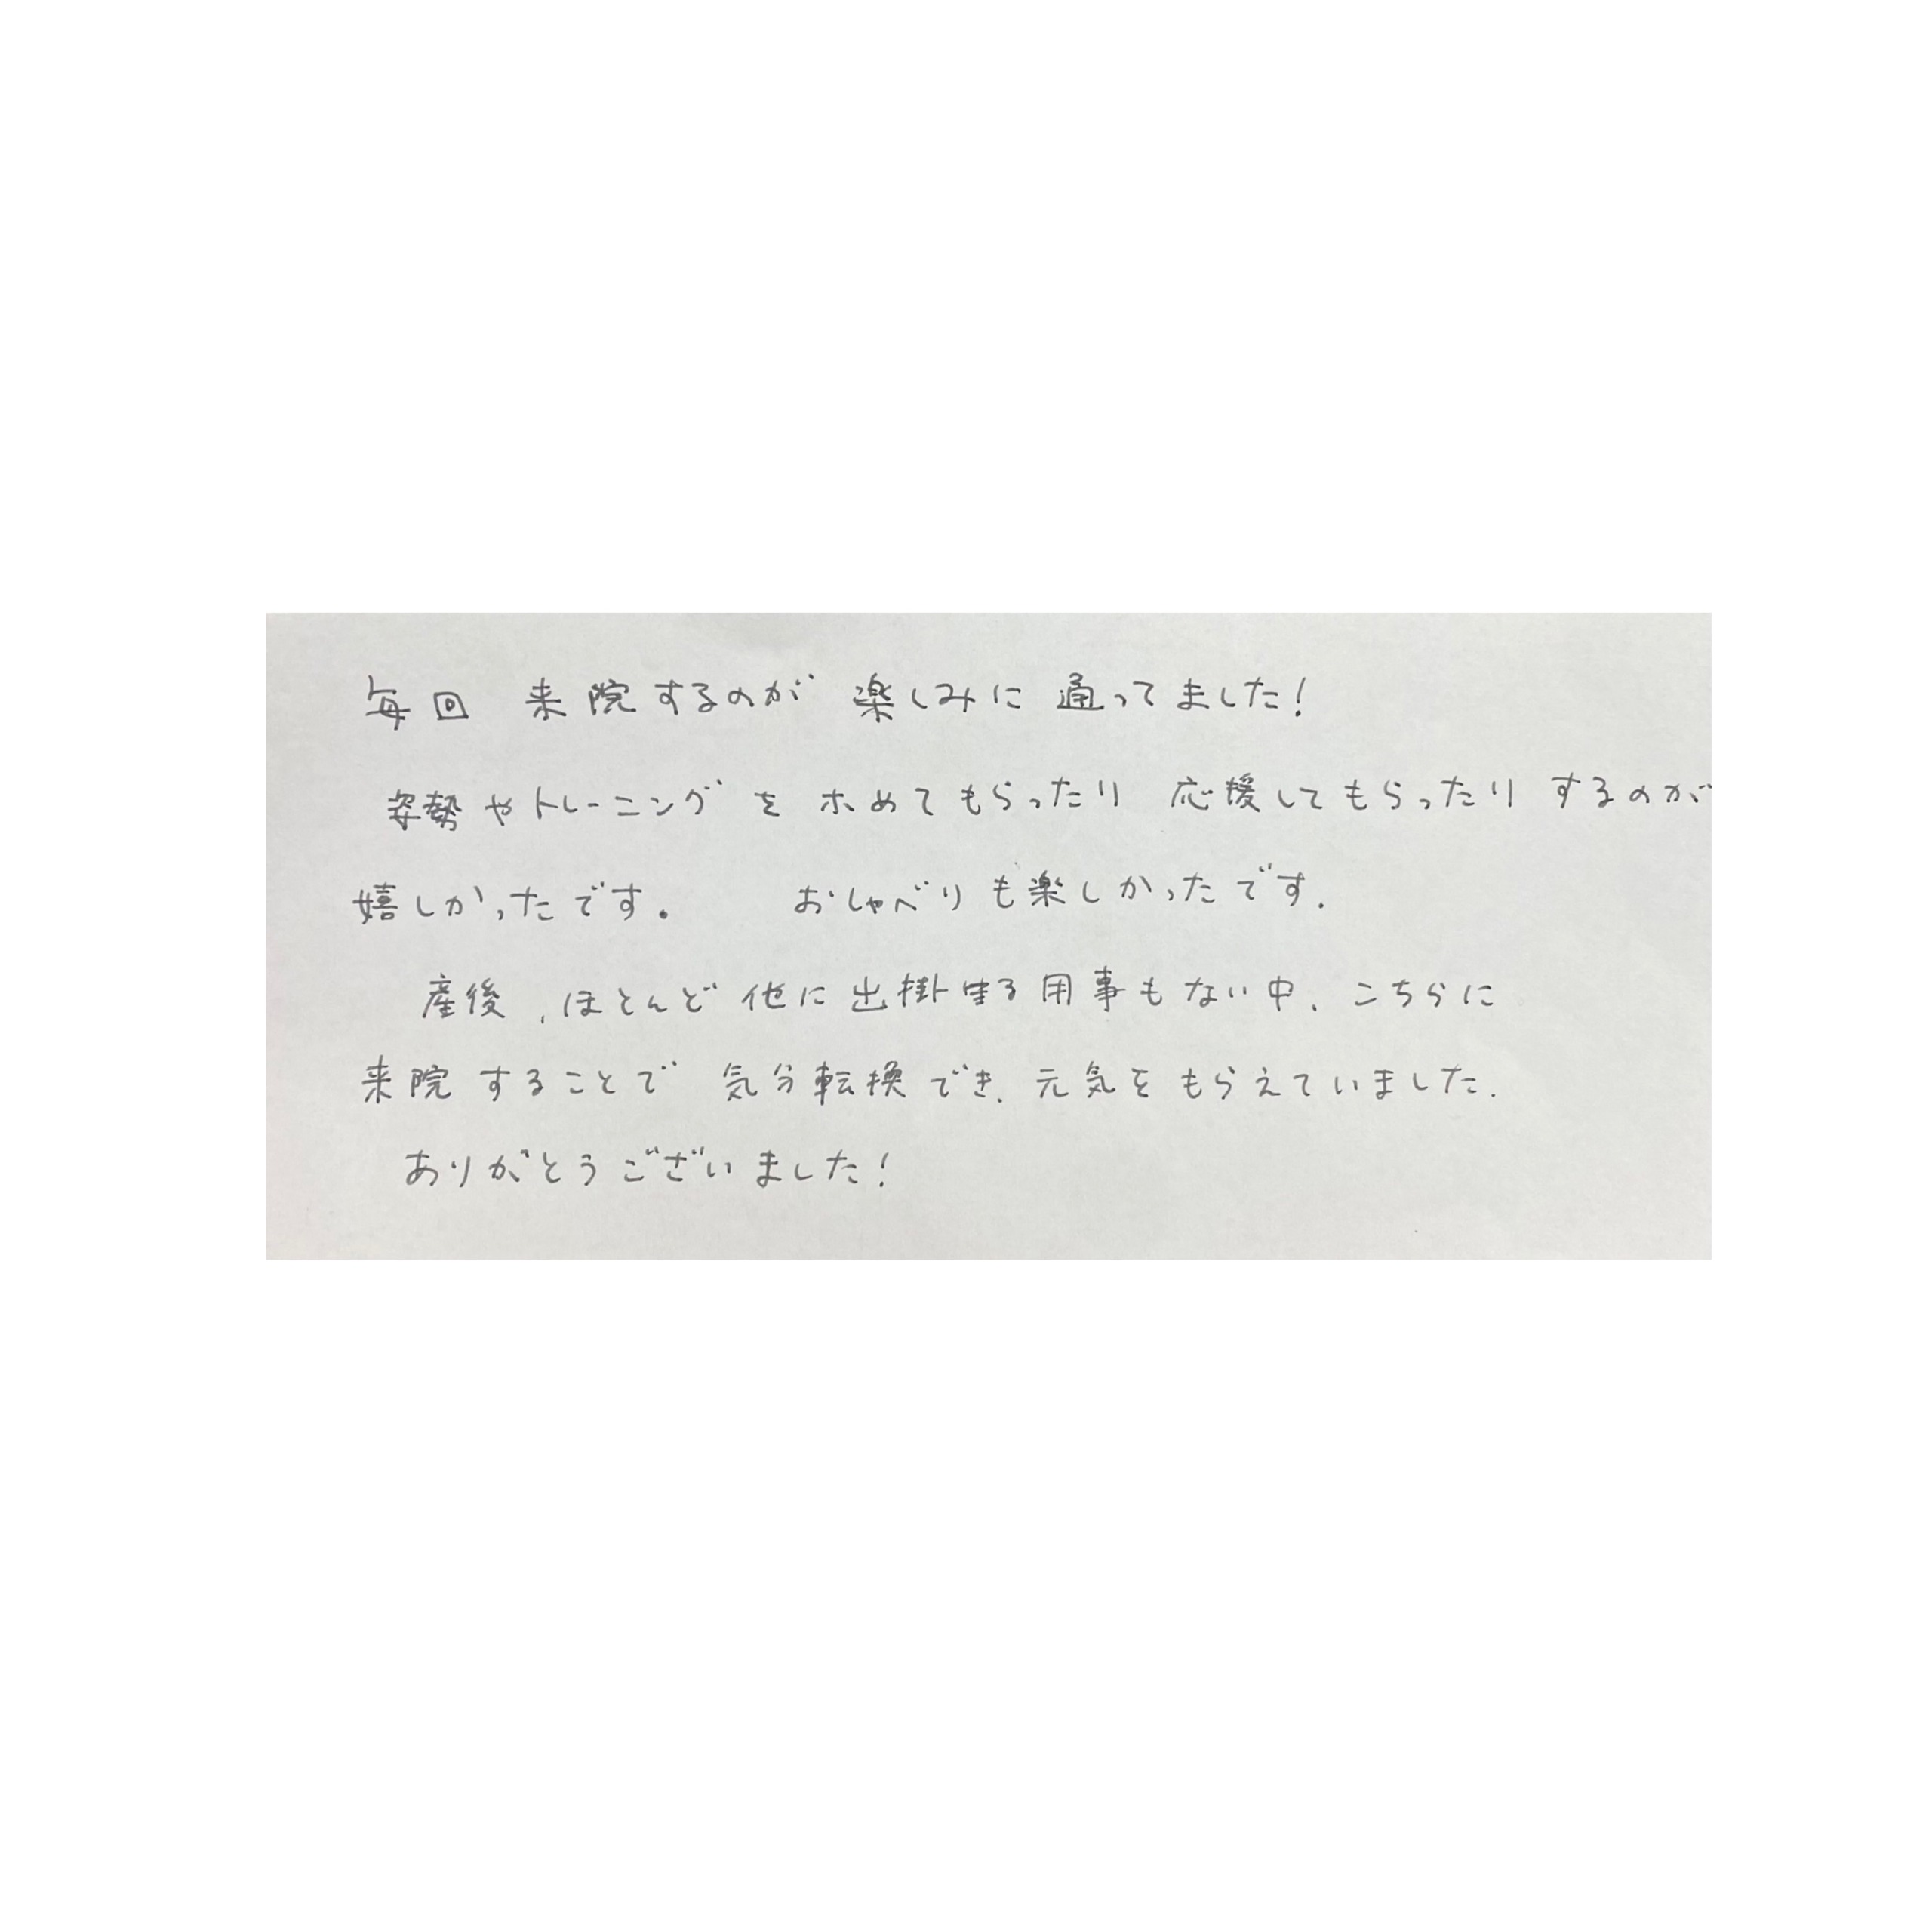 毎回 来院するのが 楽しみに 通ってました!
姿勢やトレーニングを ホめてもらったり 応援してもらったり するのが
嬉しかったです。 おしゃべりも楽しかったです.
産後、ほとんど 他に 出掛ける用事もない中、こちらに
来院することで 気分転換でき、元気をもらえていました.
ありがとうございました!